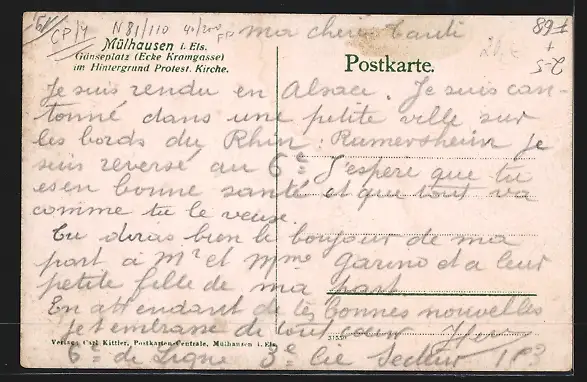 15f
CP/4
N81/110 40/200
ma cherie tanti
Mülhausen i. Els.
Gänseplatz (Ecke Kramgasse)
im Hintergrund Protest. Kirche.
Postkarte.
Je suis rendu en Alsace. Je suis can-
tonné dans une petite ville sur
les bords du Rhin: Rumersheim je
suis reversé au 6e J'espère que tu
es en bonne santé et que tout va
comme tu le veuse.
Tu diras bien le bonjour de ma
part à Mr et Mme Garino et a leur
petite fille de ma part
En attendant de tes bonnes nouvelles
je t'embrasse de tout cœur
Verlag: Carl Kittler, Postkarten-Centrale, Mülhausen i. Els.
31559
6e de Ligne 3e Cie Secteur 193